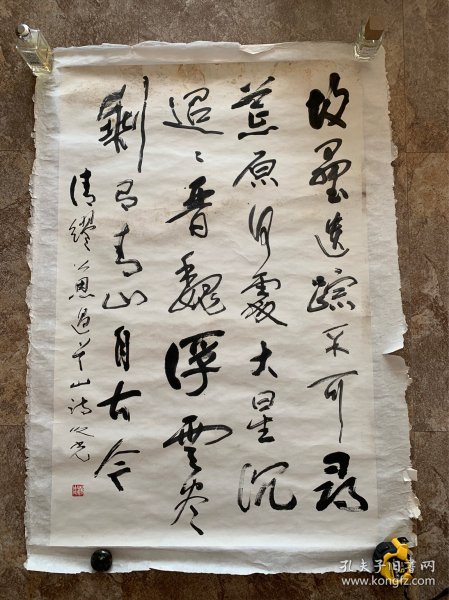 故垒遗踪不可寻
荒原何处大星沉
迢々晋魏浮云卷
剩有青山自古今
清缪公恩过草山诗
孔夫子旧书网
www.kongfz.com